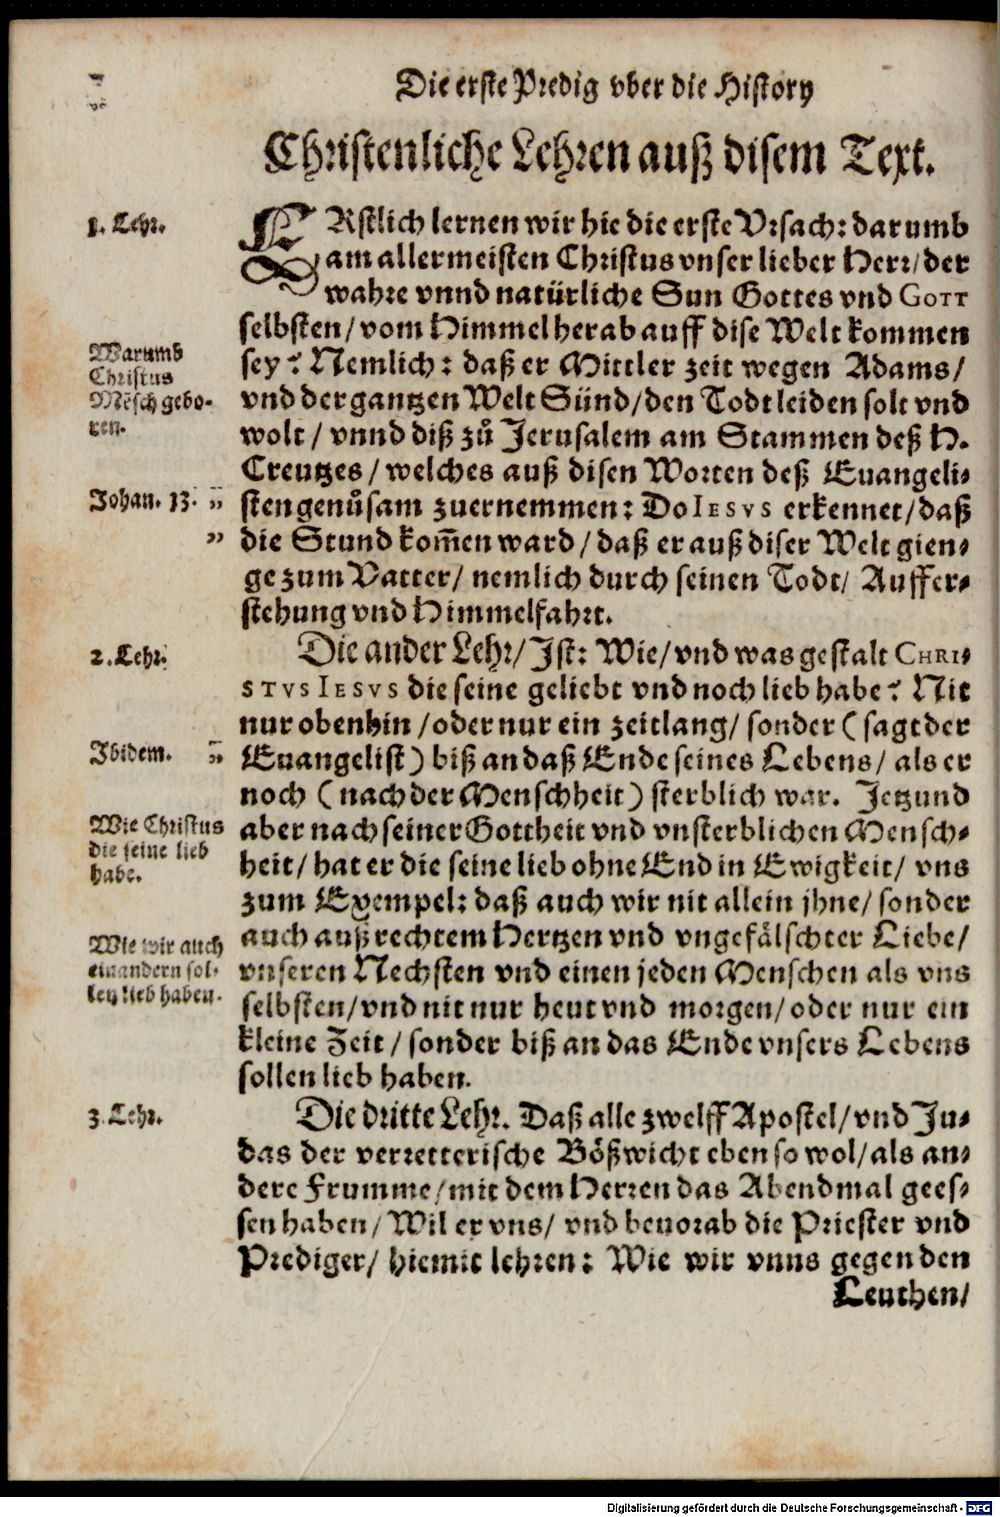 Die erste Predig vber die History
Christenliche Lehren auß disem Text.
1. Lehr.
ERstlich lernen wir hie die erste Vrsach: darumb
am allermeisten Christus vnser lieber Herr/ der
wahre vnnd natürliche Sun Gottes vnd GOTT
selbsten/ vom Himmel herab auff dise Welt kommen
Warumb
Christus
Mẽsch gebo-
ren.
sey? Nemlich: daß er Mittler zeit wegen Adams/
vnd der gantzen Welt Sünd/ den Todt leiden solt vnd
wolt/ vnnd diß zů Jerusalem am Stammen deß H.
Creutzes/ welches auß disen Worten deß Euangeli-
Johan. 13. „
sten genůsam zuernemmen: Do IESVS erkennet/ daß
„
die Stund kom̃en ward/ daß er auß diser Welt gien-
ge zum Vatter/ nemlich durch seinen Todt/ Auffer-
stehung vnd Himmelfahrt.
2. Lehr.
Die ander Lehr/ Jst: Wie/ vnd was gestalt CHRI-
STVS IESVS die seine geliebt vnd noch lieb habe? Nit
nur obenhin/ oder nur ein zeitlang/ sonder (sagt der
Ibidem. „
Euangelist) biß an daß Ende seines Lebens/ als er
noch (nach der Menschheit) sterblich war. Jetzund
Wie Christus
die seine lieb
habe.
aber nach seiner Gottheit vnd vnsterblichen Mensch-
heit/ hat er die seine lieb ohne End in Ewigkeit/ vns
zum Exempel: daß auch wir nit allein jhne/ sonder
Wie wir auch
einandern sol-
len lieb haben.
auch auß rechtem Hertzen vnd vngefälschter Liebe/
vnseren Nechsten vnd einen jeden Menschen als vns
selbsten/ vnd nit nur heut vnd morgen/ oder nur ein
kleine Zeit/ sonder biß an das Ende vnsers Lebens
sollen lieb haben.
3. Lehr.
Die dritte Lehr. Daß alle zwelff Apostel/ vnd Ju-
das der verretterische Bößwicht eben so wol/ als an-
dere Frumme/ mit dem Herren das Abendmal gees-
sen haben/ Wil er vns/ vnd beuorab die Priester vnd
Prediger/ hiemit lehren: Wie wir vnns gegen den
Leuthen/
Digitalisierung gefördert durch die Deutsche Forschungsgemeinschaft - DFG